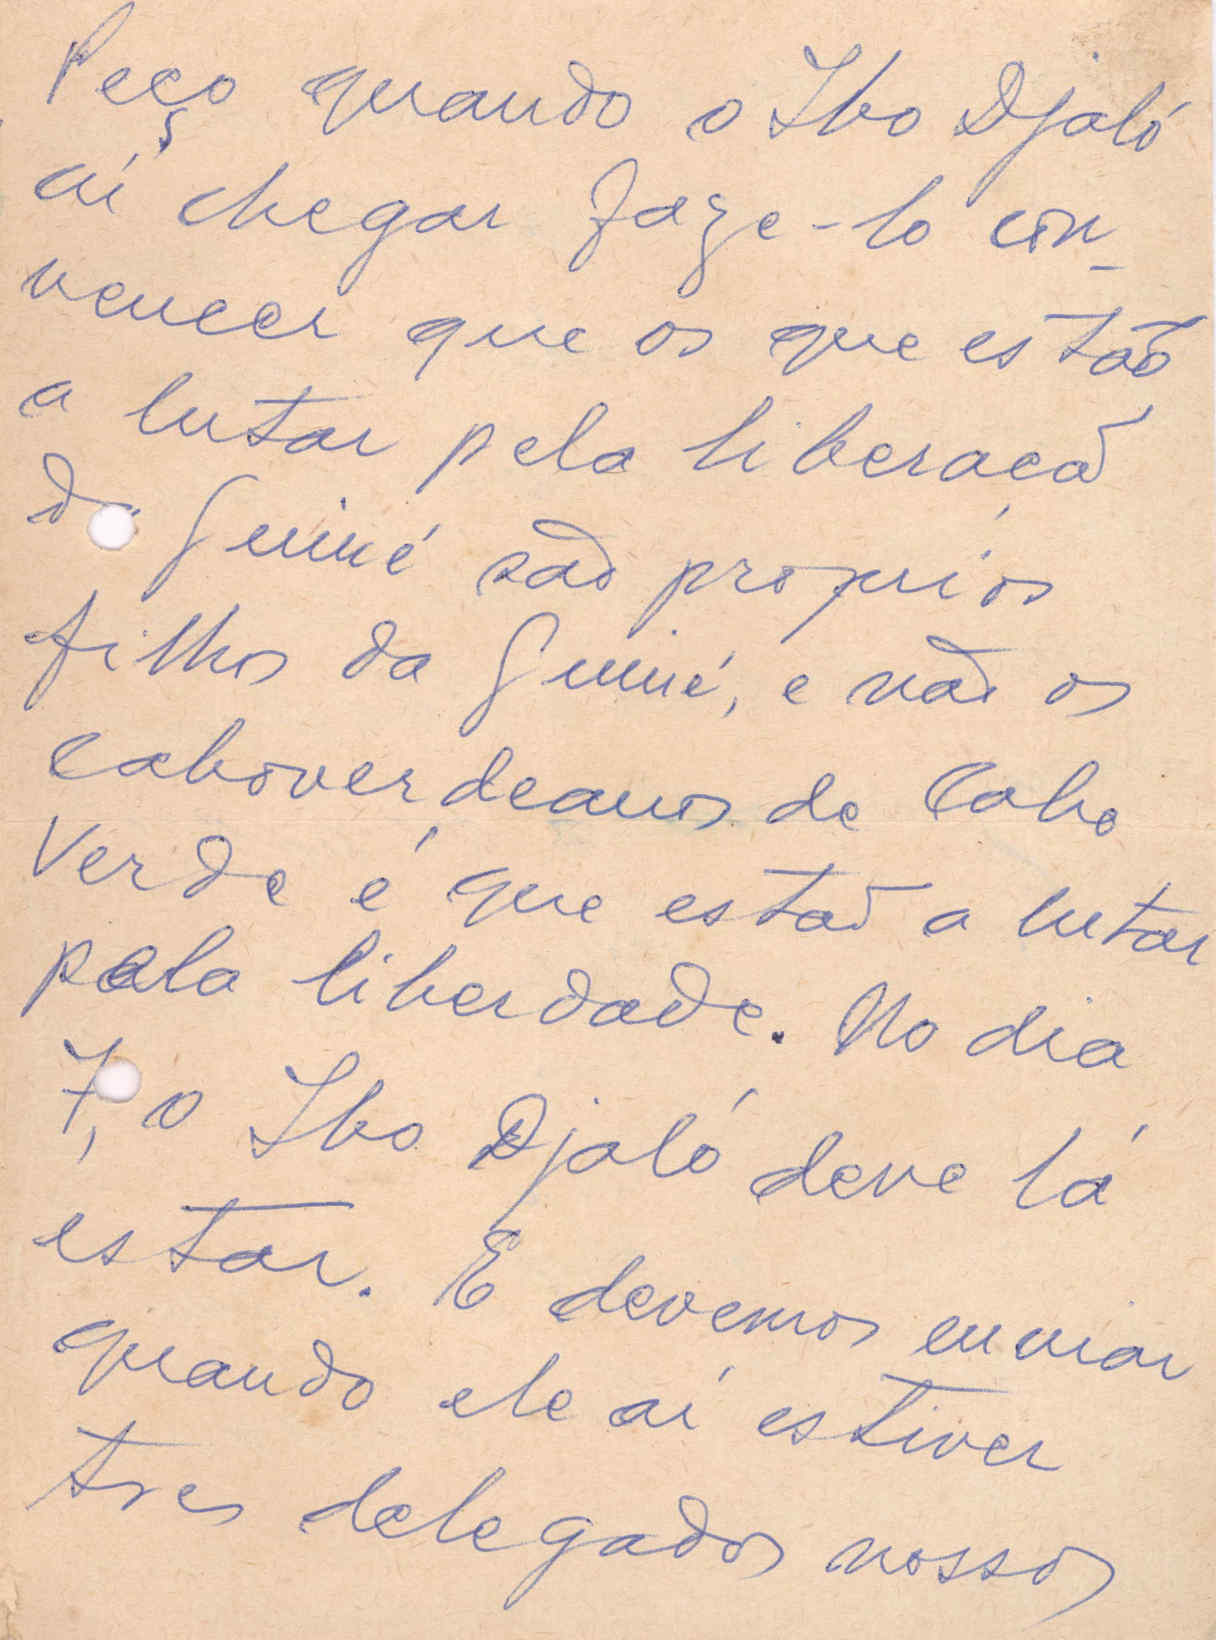 Peço quando o Ibo Djaló
aí chegar faze-lo con-
vencer que os que estão
a lutar pela liberacão
da Guiné são proprios
filhos da Guiné, e não os
caboverdeanos de Cabo
Verde é que estão a lutar
pela liberdade. No dia
7, o Ibo Djaló deve lá
estar. E devemos enviar
quando ele aí estiver
tres delegados nossos